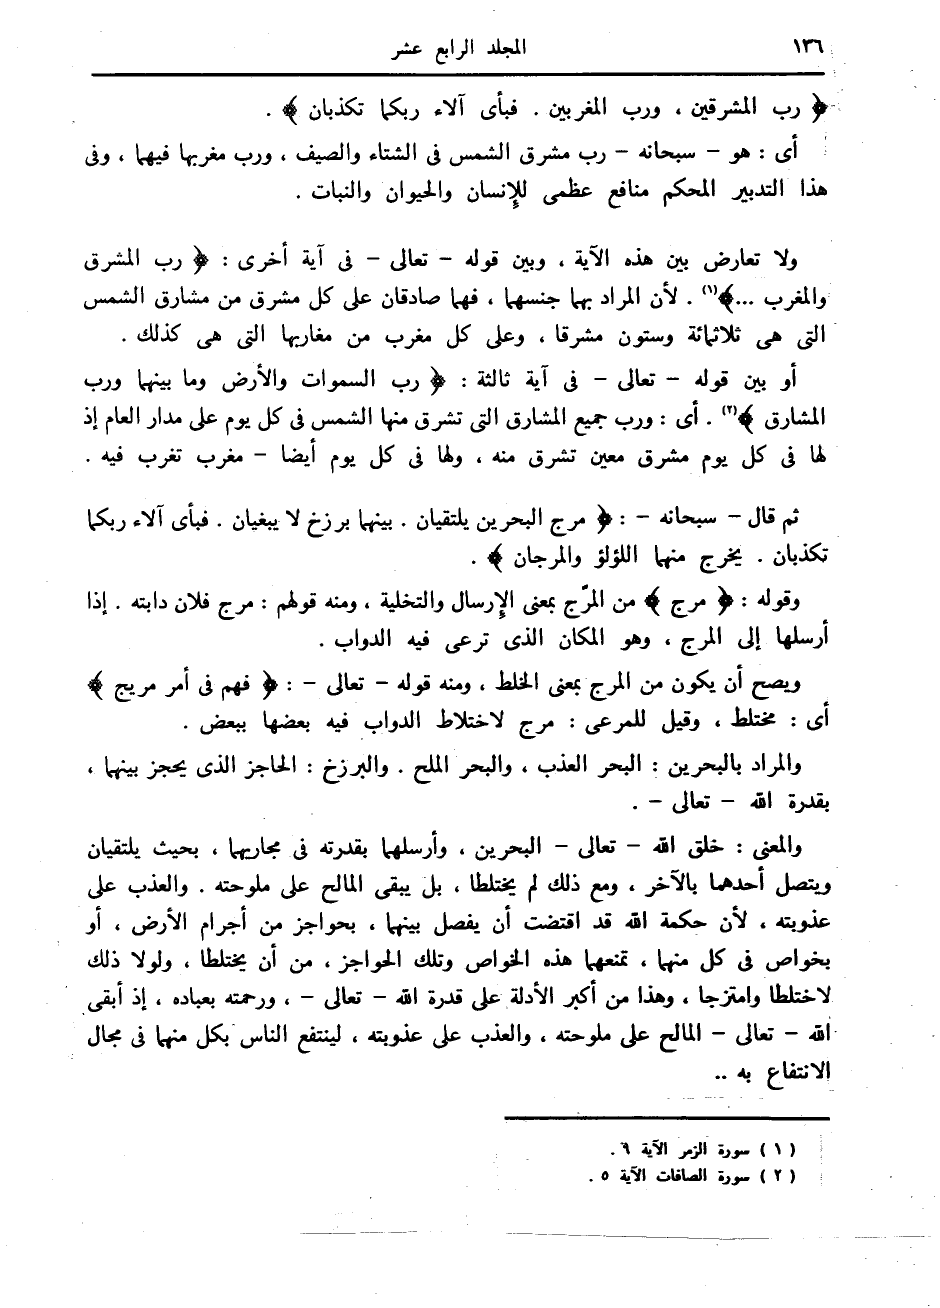 ١٣٦
المجلد الرابع عشر
﴿ رب المشرقين ، ورب المغربين . فبأى آلاء ربكما تكذبان ﴾ .
أى : هو – سبحانه – رب مشرق الشمس فى الشتاء والصيف ، ورب مغربها فيهما ، وفى
هذا التدبير المحكم منافع عظمى للإِنسان والحيوان والنبات .
ولا تعارض بين هذه الآية ، وبين قوله – تعالى – فى آية أخرى : ﴿ رب المشرق
والمغرب ...﴾(١) . لأن المراد بهما جنسهما ، فهما صادقان على كل مشرق من مشارق الشمس
التى هى ثلاثمائة وستون مشرقا ، وعلى كل مغرب من مغاربها التى هى كذلك .
أو بين قوله – تعالى – فى آية ثالثة : ﴿ رب السموات والأرض وما بينهما ورب
المشارق ﴾(٢) . أى : ورب جميع المشارق التى تشرق منها الشمس فى كل يوم على مدار العام إذ
لها فى كل يوم مشرق معين تشرق منه ، ولها فى كل يوم أيضا – مغرب تغرب فيه .
ثم قال – سبحانه – : ﴿ مرج البحرين يلتقيان . بينهما برزخ لا يبغيان . فبأى آلاء ربكما
تكذبان . يخرج منهما اللؤلؤ والمرجان ﴾ .
وقوله : ﴿ مرج ﴾ من المرّج بمعنى الإِرسال والتخلية ، ومنه قولهم : مرج فلان دابته . إذا
أرسلها إلى المرج ، وهو المكان الذى ترعى فيه الدواب .
ويصح أن يكون من المرج بمعنى الخلط ، ومنه قوله – تعالى – : ﴿ فهم فى أمر مريج ﴾
أى : مختلط ، وقيل للمرعى : مرج لاختلاط الدواب فيه بعضها ببعض .
والمراد بالبحرين : البحر العذب ، والبحر الملح . والبرزخ : الحاجز الذى يحجز بينهما ،
بقدرة الله – تعالى – .
والمعنى : خلق الله – تعالى – البحرين ، وأرسلهما بقدرته فى مجاريهما ، بحيث يلتقيان
ويتصل أحدهما بالآخر ، ومع ذلك لم يختلطا ، بل يبقى المالح على ملوحته . والعذب على
عذوبته ، لأن حكمة الله قد اقتضت أن يفصل بينهما ، بحواجز من أجرام الأرض ، أو
بخواص فى كل منهما ، تمنعهما هذه الخواص وتلك الحواجز ، من أن يختلطا ، ولولا ذلك
لاختلطا وامتزجا ، وهذا من أكبر الأدلة على قدرة الله – تعالى – ، ورحمته بعباده ، إذ أبقى
الله – تعالى – المالح على ملوحته ، والعذب على عذوبته ، لينتفع الناس بكل منهما فى مجال
الانتفاع به ..
( ١ ) سورة الزمر الآية ٦ .
( ٢ ) سورة الصافات الآية ٥ .